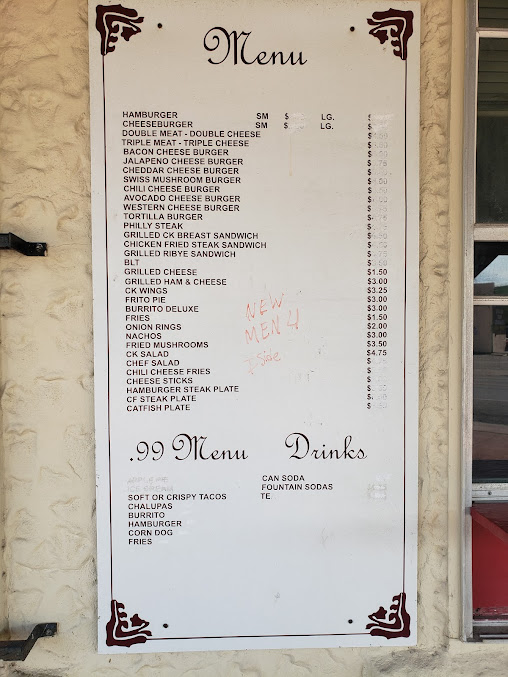 Menu
HAMBURGER SM $ LG. $
CHEESEBURGER SM $ LG. $
DOUBLE MEAT - DOUBLE CHEESE $
TRIPLE MEAT - TRIPLE CHEESE $
BACON CHEESE BURGER $
JALAPENO CHEESE BURGER $
CHEDDAR CHEESE BURGER $
SWISS MUSHROOM BURGER $
CHILI CHEESE BURGER $
AVOCADO CHEESE BURGER $
WESTERN CHEESE BURGER $
TORTILLA BURGER $
PHILLY STEAK $
GRILLED CK BREAST SANDWICH $
CHICKEN FRIED STEAK SANDWICH $
GRILLED RIBYE SANDWICH $
BLT $
GRILLED CHEESE $1.50
GRILLED HAM & CHEESE $3.00
CK WINGS $3.25
FRITO PIE $3.00
BURRITO DELUXE $3.00
FRIES $1.50
ONION RINGS $2.00
NACHOS $3.00
FRIED MUSHROOMS $3.50
CK SALAD $4.75
CHEF SALAD $
CHILI CHEESE FRIES $
CHEESE STICKS $
HAMBURGER STEAK PLATE $
CF STEAK PLATE $
CATFISH PLATE $
NEW
MENU
Side
.99 Menu
SOFT OR CRISPY TACOS
CHALUPAS
BURRITO
HAMBURGER
CORN DOG
FRIES
Drinks
CAN SODA
FOUNTAIN SODAS
TE